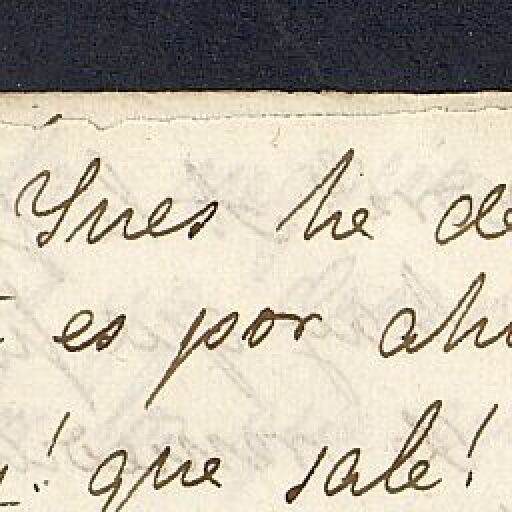 Ynes he de
es por aho
! que sale!